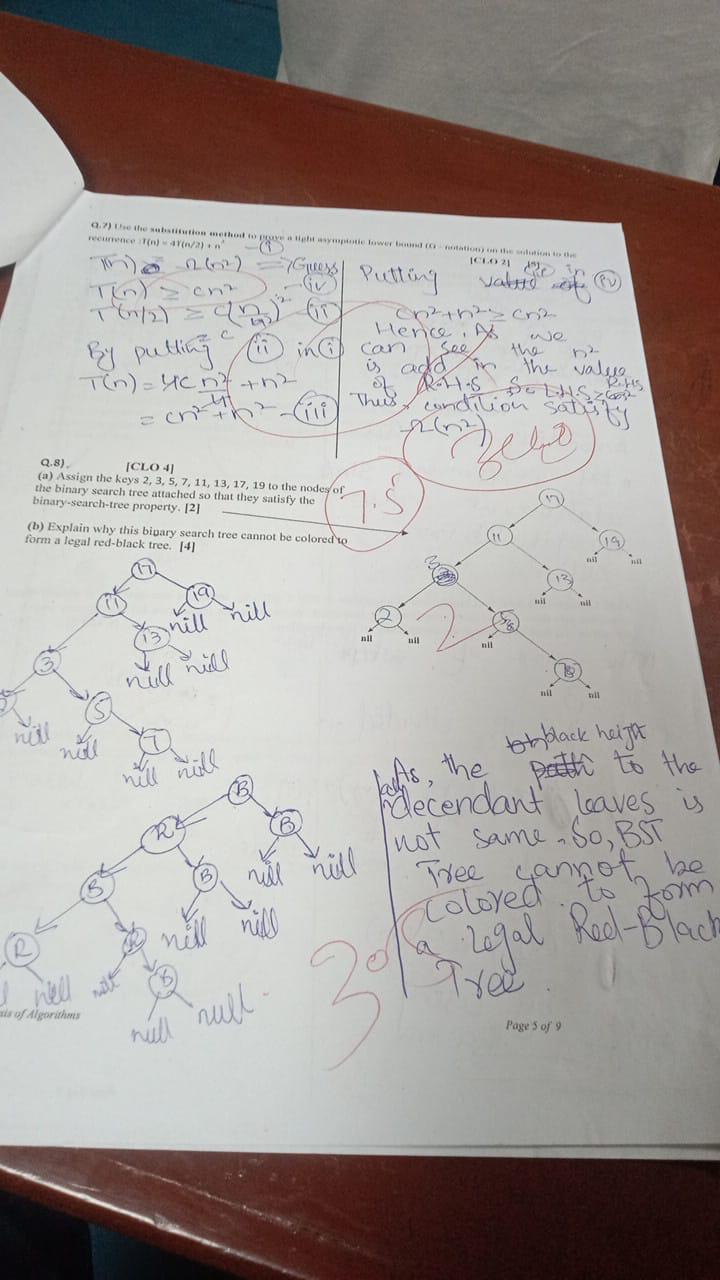 Q.7) Use the substitution method to prove a tight asymptotic lower bound (Ω - notation) on the solution to the
recurrence :T(n) = 4T(n/2) + n² - (i)
[CLO 2]
T(n) = Ω(n²) => Guess
T(n) ≥ cn² - (iv)
T(n/2) ≥ c(n/2)² - (ii)
By putting (ii) in (i)
T(n) = 4c n²/4 + n²
= cn² + n² - (iii)
Putting value in (iv)
cn²+n² ≥ cn²
Hence, As we
can see the n²
is add in the value
of R.H.S So L.H.S ≥ R.H.S
Thus, condition satisfy
Ω(n²)
Zero
7.5
Q.8) [CLO 4]
(a) Assign the keys 2, 3, 5, 7, 11, 13, 17, 19 to the nodes of
the binary search tree attached so that they satisfy the
binary-search-tree property. [2]
(b) Explain why this binary search tree cannot be colored to
form a legal red-black tree. [4]
17
11 19
nil nil
3 13
nil nil
2 5
nil nil nil
7
nil nil
2
17
11 19
nill nill
3 13
nill nill
5
nill nill
7
nill nill
B
R B
nill nill
B B
nill nill
R R
nill nill
B
null null
3
As, the black height
path to the
decendant leaves is
not same. So, BST
Tree cannot be
colored to form
a legal Red-Black
Tree.
sis of Algorithms
Page 5 of 9